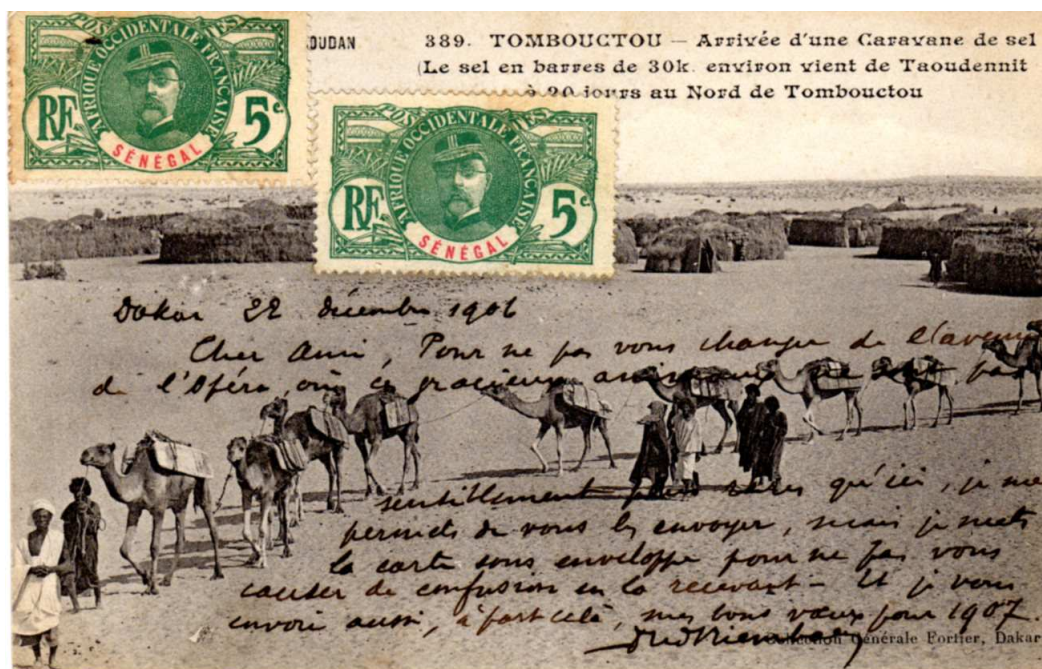 AFRIQUE OCCIDENTALE FRANÇAISE
RF
5c
SÉNÉGAL
POSTES
AFRIQUE OCCIDENTALE FRANÇAISE
RF
5c
SÉNÉGAL
OUDAN
389. TOMBOUCTOU – Arrivée d'une Caravane de sel
(Le sel en barres de 30k. environ vient de Taoudennit
à 20 jours au Nord de Tombouctou
Dakar 22 décembre 1906
Cher Ami, Pour ne pas vous changer de l'avenue
de l'Opéra où ces gracieux animaux ne sont pas
sentiblement plus rares qu'ici, je me
permets de vous les envoyer, mais je mets
la carte sous enveloppe pour ne pas vous
causer de confusion en la recevant – Et je vous
envoie aussi, à part cela, mes bons vœux pour 1907.
Collection Générale Fortier, Dakar